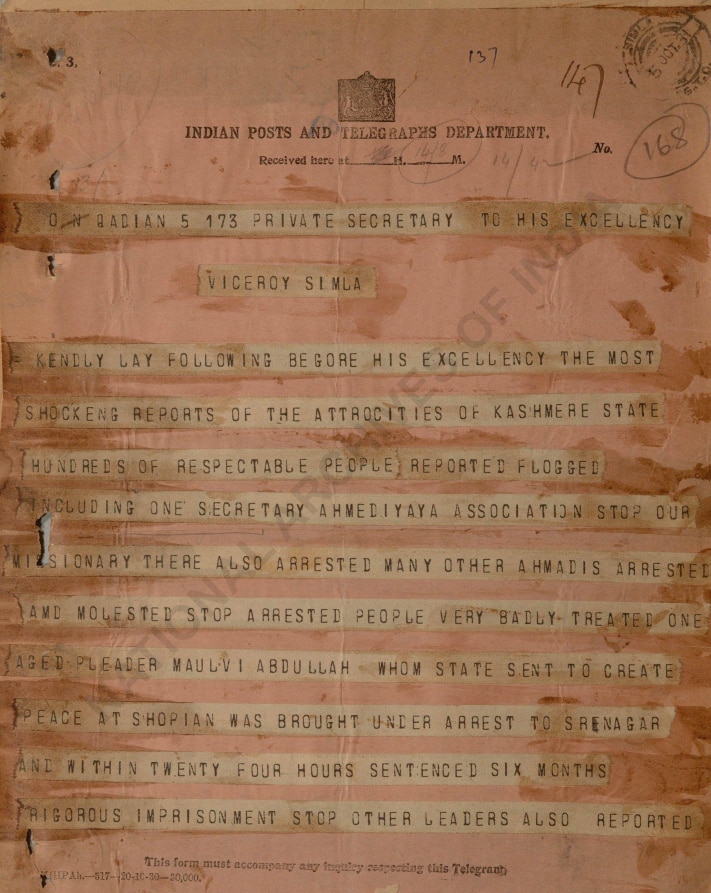 C. 3.
137
147
168
INDIAN POSTS AND TELEGRAPHS DEPARTMENT.
Received here at H. M.
No.
O N QADIAN 5 173 PRIVATE SECRETARY TO HIS EXCELLENCY
VICEROY SIMLA
= KENDLY LAY FOLLOWING BEGORE HIS EXCELLENCY THE MOST
SHOCKENG REPORTS OF THE ATTROCITIES OF KASHMERE STATE
HUNDREDS OF RESPECTABLE PEOPLE REPORTED FLOGGED
INCLUDING ONE SECRETARY AHMEDIYAYA ASSOCIATION STOP OUR
MISSIONARY THERE ALSO ARRESTED MANY OTHER AHMADIS ARRESTED
AMD MOLESTED STOP ARRESTED PEOPLE VERY BADLY TREATED ONE
AGED PLEADER MAULVI ABDULLAH WHOM STATE SENT TO CREATE
PEACE AT SHOPIAN WAS BROUGHT UNDER ARREST TO SRENAGAR
AND WITHIN TWENTY FOUR HOURS SENTENCED SIX MONTHS
RIGOROUS IMPRISONMENT STOP OTHER LEADERS ALSO REPORTED
This form must accompany any inquiry respecting this Telegram.
517—20-10-30—30,000.
NATIONAL ARCHIVES OF INDIA